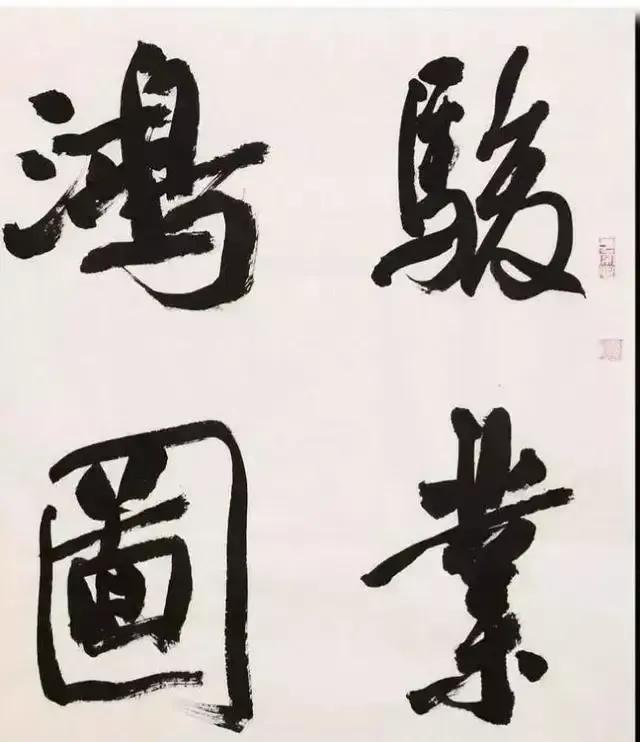 駿業
鴻圖